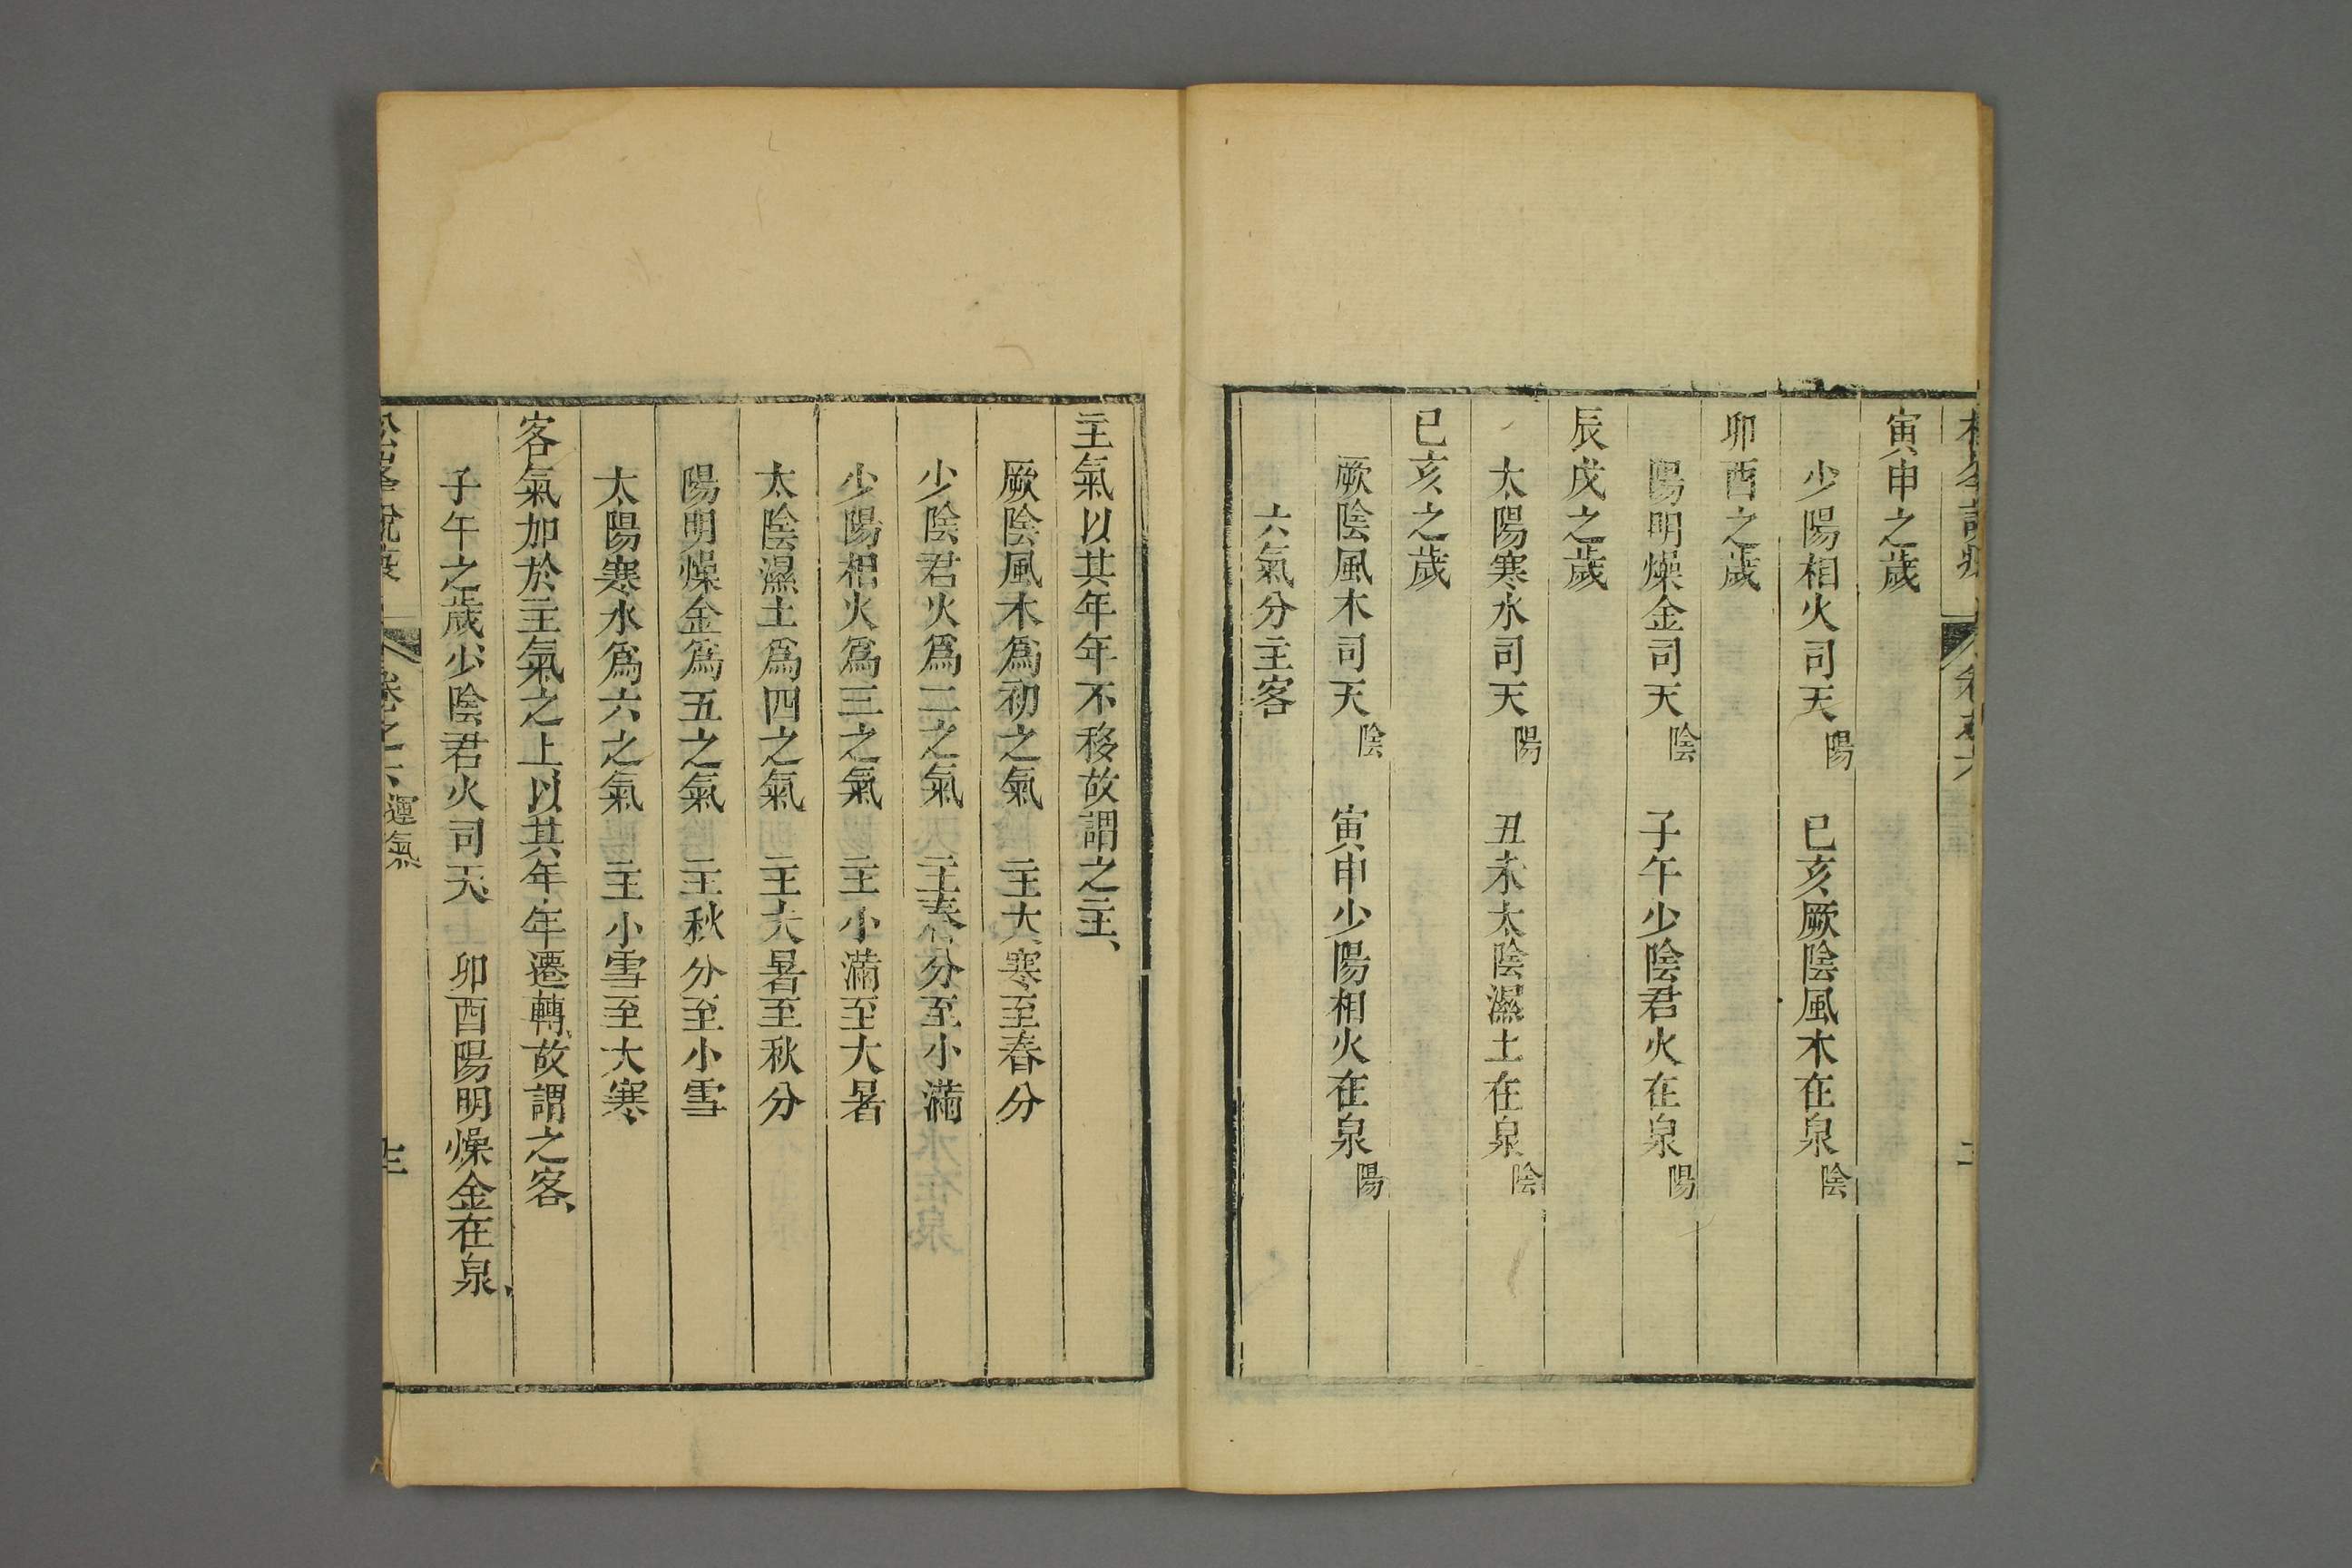 寅申之歲
少陽相火司天陽　巳亥厥陰風木在泉陰
卯酉之歲
陽明燥金司天陰　子午少陰君火在泉陽
辰戌之歲
太陽寒水司天陽　丑未太陰濕土在泉陰
巳亥之歲
厥陰風木司天陰　寅申少陽相火在泉陽
六氣分主客
主氣以其年年不移故謂之主、
厥陰風木爲初之氣　主大寒至春分
少陰君火爲二之氣　主春分至小滿
少陽相火爲三之氣　主小滿至大暑
太陰濕土爲四之氣　主大暑至秋分
陽明燥金爲五之氣　主秋分至小雪
太陽寒水爲六之氣　主小雪至大寒
客氣加於主氣之上以其年年遷轉、故謂之客、
子午之歲、少陰君火司天、　卯酉陽明燥金在泉、
卷之六 運氣